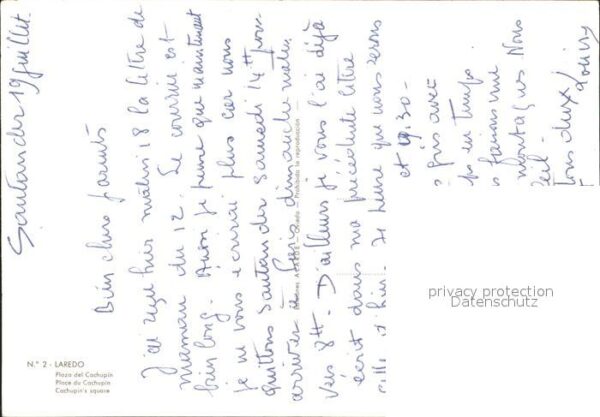 Santander 19 juillet.
Bien chers parents
J'ai reçu hier matin 18 la lettre de
maman du 12. Le courrier est
bien long. Aussi je pense que maintenant
je ne vous écrirai plus car nous
quittons Santander samedi 14H pour
arriver à Paris dimanche matin
vers 8H. D'ailleurs je vous l'ai déjà
écrit dans ma précédente lettre
celle d'hier. Je pense que nous serons
et 9.30 -
gris avec
en temps.
faisons une
montagnes Nous
tous deux
N.° 2 - LAREDO
Plaza del Cachupín
Place du Cachupin
Cachupin's square
Ediciones ALARDE - Oviedo - Prohibida la reproducción
privacy protection
Datenschutz